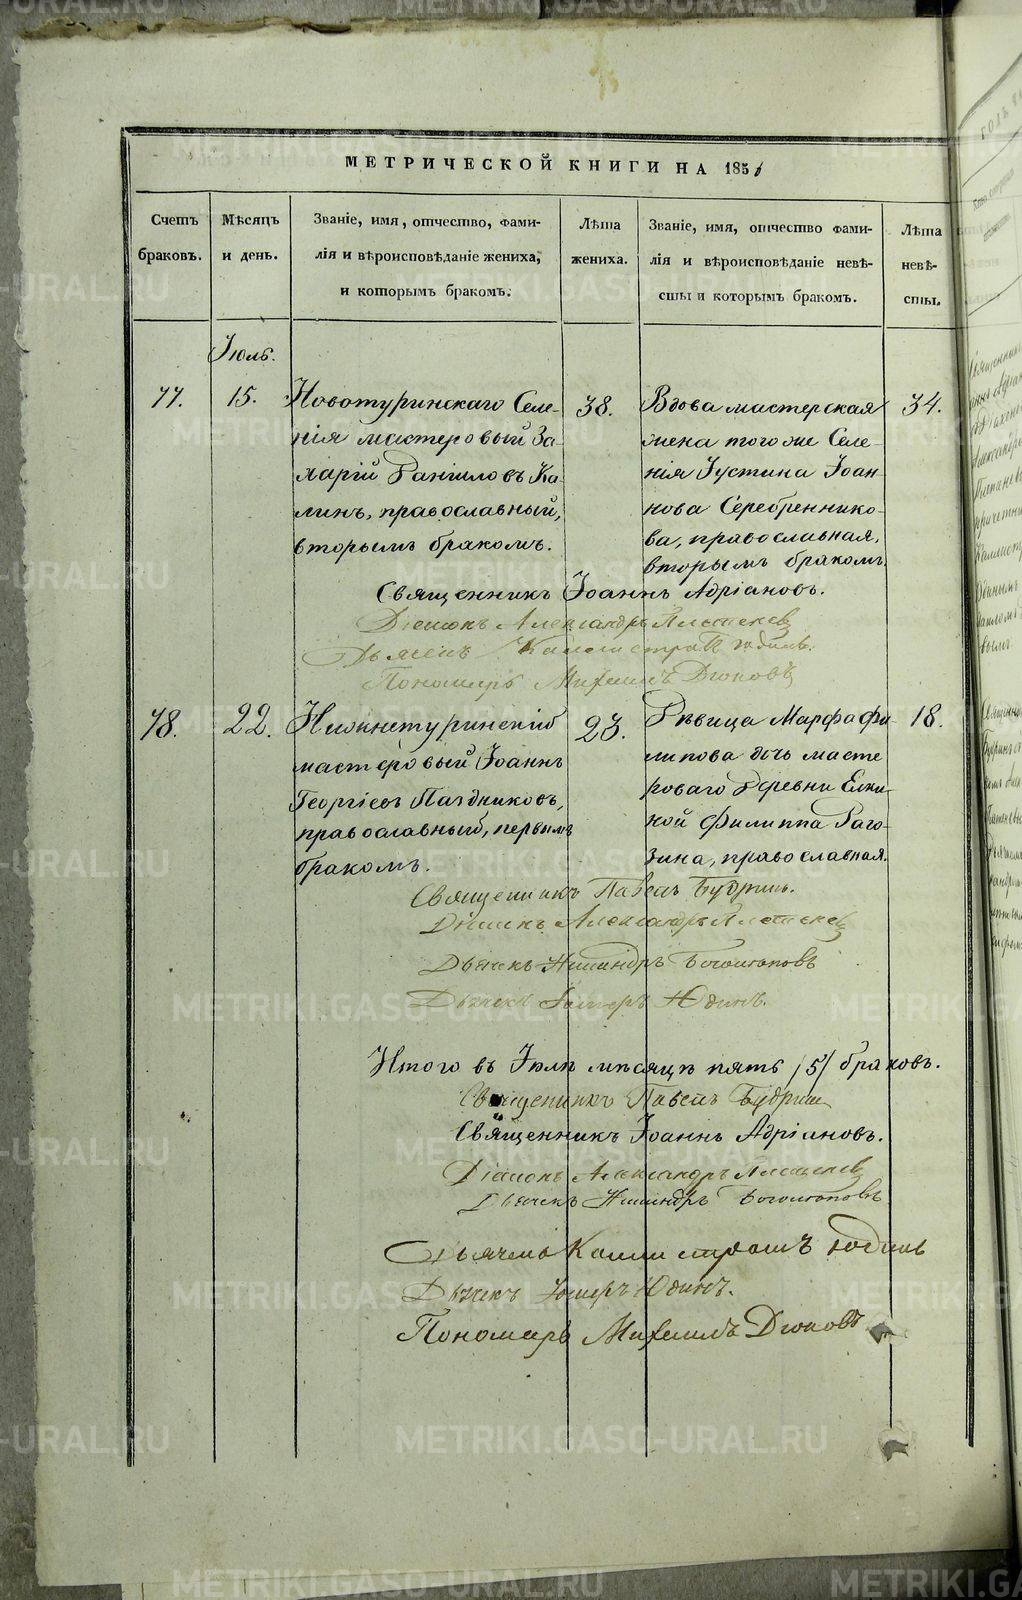 МЕТРИЧЕСКОЙ КНИГИ НА 1851
Счетъ браковъ.
Мѣсяцъ и день.
Званіе, имя, отчество, фами-
лія и вѣроисповѣданіе жениха,
и которымъ бракомъ.
Лѣта жениха.
Званіе, имя, отчество фами-
лія и вѣроисповѣданіе невѣ-
сты и которымъ бракомъ.
Лѣта невѣ-
сты.
Іюль.
77. 15.
Новотуринскаго Селе-
нія мастеровый За-
харій Даніиловъ Ка-
линъ, православный,
вторымъ бракомъ.
38.
Вдова мастерская
жена того же Селе-
нія Іустина Іоан-
нова Серебреннико-
ва, православная,
вторымъ бракомъ.
34.
Священникъ Іоаннъ Адріановъ.
Діаконъ Александръ
Дьячекъ Каллистратъ Юдинъ.
Пономарь Михаилъ Дюковъ
78. 22.
Нижнетуринскій
мастеровый Іоаннъ
Георгіевъ Паздниковъ,
православный, первымъ
бракомъ.
23.
Дѣвица Марфа Фи-
липова дочь масте
роваго Деревни Елки-
ной Филиппа Раго-
зина, православная.
18.
Священникъ Павелъ Будринъ.
Діаконъ Александръ
Дьячекъ Никандръ Богомоловъ
Дьячекъ Юдинъ.
Итого въ Іюлѣ мѣсяцѣ пять /5/ браковъ.
Священникъ Павелъ Будринъ
Священникъ Іоаннъ Адріановъ.
Діаконъ Александръ
Дьячекъ Никандръ Богомоловъ
Дьячекъ Каллистратъ Юдинъ
Дьячекъ Юдинъ.
Пономарь Михаилъ Дюковъ
METRIKI.GASO-URAL.RU